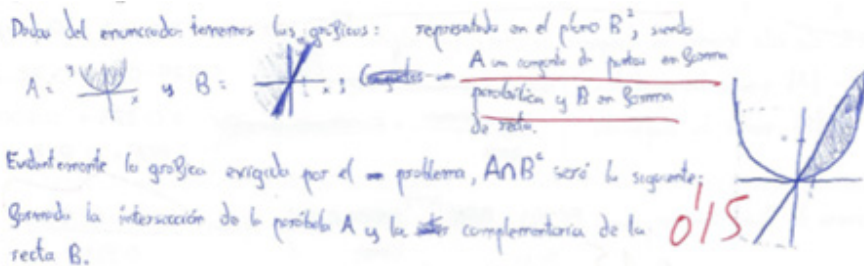 Datos del enunciado: tenemos las gráficas: representado en el plano B², siendo
A = y x y B = x ; A un conjunto de puntos en forma
parabólica y B en forma
de recta.
Evidentemente la gráfica exigida por el problema, A∩Bᶜ será la siguiente:
formada la intersección de la parábola A y la complementaria de la
recta B.
0'15